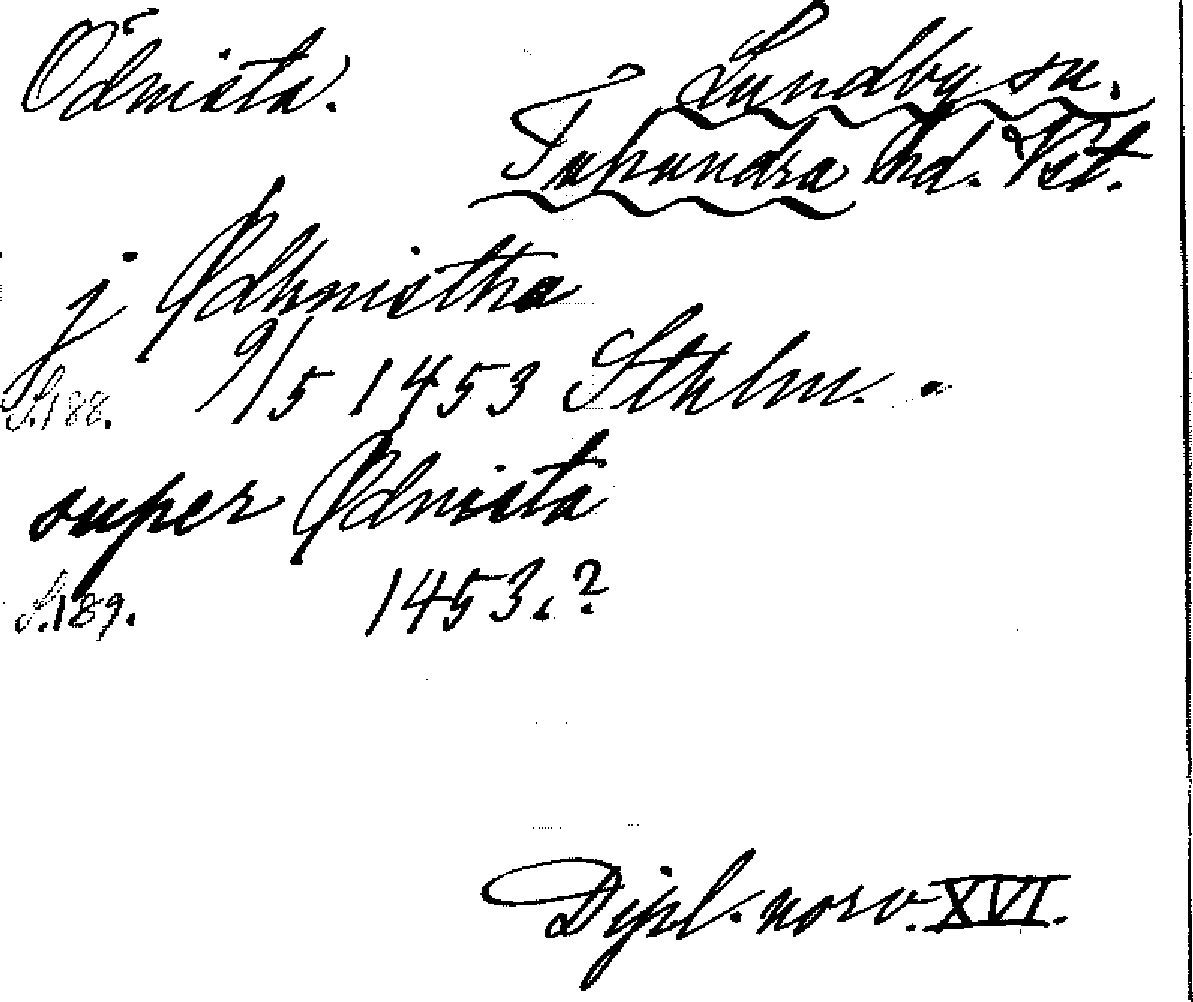 Ödnista.
Lundby sn.
Tuhundra hd. Vst.
j Ødhnistha
S. 188. 9/5 1453 Sthlm.
super Ødnista
S. 189. 1453.?
Dipl. norv. XVI.